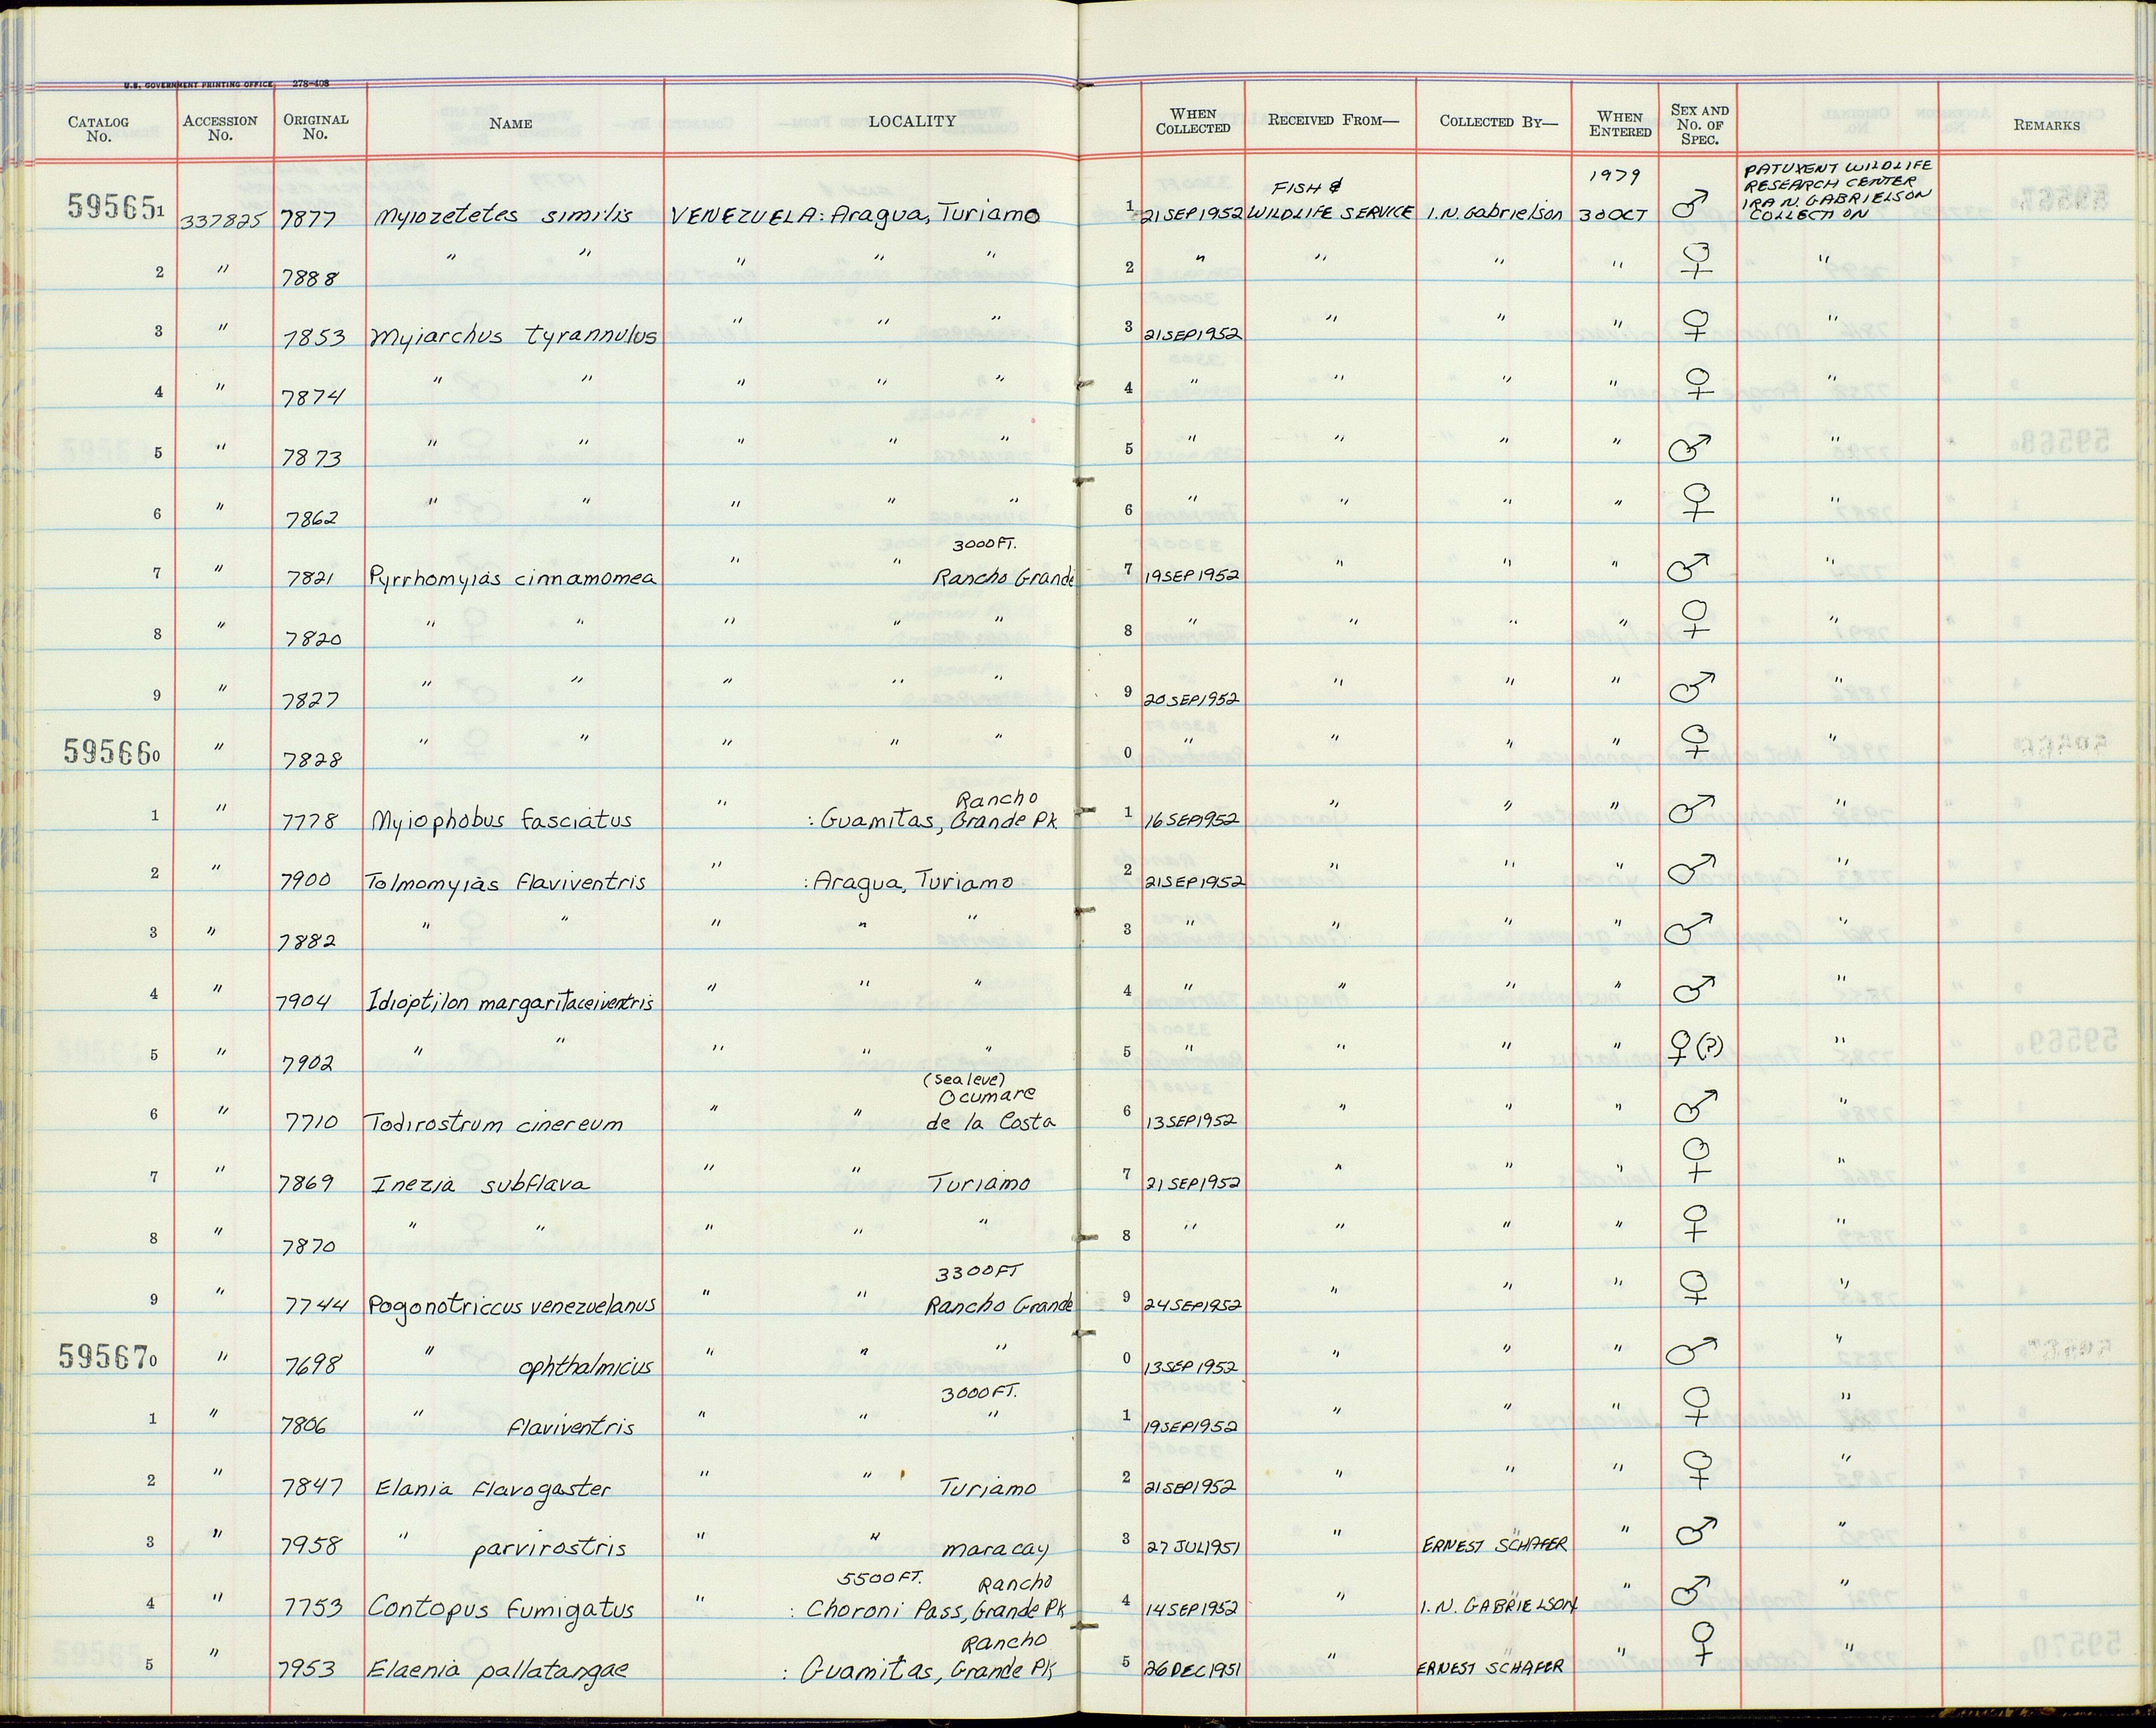 U.S. GOVERNMENT PRINTING OFFICE 278-408
CATALOG No. ACCESSION No. ORIGINAL No. NAME LOCALITY WHEN COLLECTED RECEIVED FROM— COLLECTED BY— WHEN ENTERED SEX AND No. OF SPEC. REMARKS
595651 337825 7877 Myiozetetes similis VENEZUELA: Aragua, Turiamo 1 21 SEP 1952 FISH & WILDLIFE SERVICE I.N. Gabrielson 1979 30 OCT ♂ PATUXENT WILDLIFE RESEARCH CENTER IRA N. GABRIELSON COLLECTION
2 " 7888 " " " " " 2 " " " " ♀ "
3 " 7853 Myiarchus tyrannulus " " " 3 21 SEP 1952 " " " ♀ "
4 " 7874 " " " " " 4 " " " " ♀ "
5 " 7873 " " " " " 5 " " " " ♂ "
6 " 7862 " " " " " 6 " " " " ♀ "
7 " 7821 Pyrrhomyias cinnamomea " " 3000 FT. Rancho Grande 7 19 SEP 1952 " " " ♂ "
8 " 7820 " " " " " 8 " " " " ♀ "
9 " 7827 " " " " " 9 20 SEP 1952 " " " ♂ "
595660 " 7828 " " " " " 0 " " " " ♀ "
1 " 7778 Myiophobus fasciatus " : Guamitas, Rancho Grande Pk 1 16 SEP 1952 " " " ♂ "
2 " 7900 Tolmomyias flaviventris " : Aragua, Turiamo 2 21 SEP 1952 " " " ♂ "
3 " 7882 " " " " " 3 " " " " ♂ "
4 " 7904 Idioptilon margaritaceiventris " " " 4 " " " " ♂ "
5 " 7902 " " " " " 5 " " " " ♀ (?) "
6 " 7710 Todirostrum cinereum " " (sea leve) Ocumare de la Costa 6 13 SEP 1952 " " " ♂ "
7 " 7869 Inezia subflava " " Turiamo 7 21 SEP 1952 " " " ♀ "
8 " 7870 " " " " " 8 " " " " ♀ "
9 " 7744 Pogonotriccus venezuelanus " " 3300 FT Rancho Grande 9 24 SEP 1952 " " " ♀ "
595670 " 7698 " ophthalmicus " " " 0 13 SEP 1952 " " " ♂ "
1 " 7806 " flaviventris " " 3000 FT. " 1 19 SEP 1952 " " " ♀ "
2 " 7847 Elania flavogaster " " Turiamo 2 21 SEP 1952 " " " ♀ "
3 " 7958 " parvirostris " " maracay 3 27 JUL 1951 " ERNEST SCHAFER " ♂ "
4 " 7753 Contopus fumigatus " 5500 FT. : Choroni Pass, Rancho Grande Pk 4 14 SEP 1952 " I.N. GABRIELSON " ♂ "
5 " 7953 Elaenia pallatangae : Guamitas, Rancho Grande Pk 5 26 DEC 1951 " ERNEST SCHAFER " ♀ "